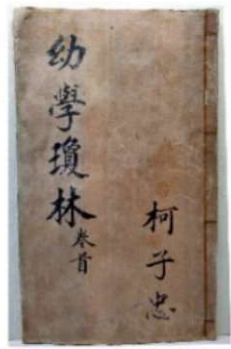 幼學瓊林
卷首
柯子忠